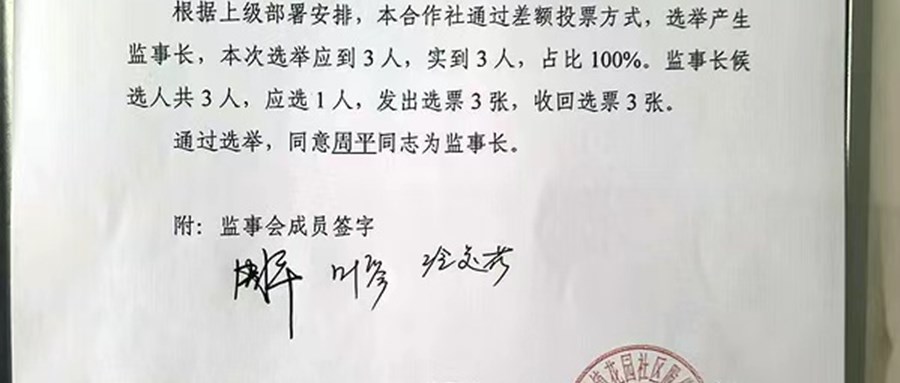 根据上级部署安排，本合作社通过差额投票方式，选举产生
监事长，本次选举应到 3 人，实到 3 人，占比 100%。监事长候
选人共 3 人，应选 1 人，发出选票 3 张，收回选票 3 张。
通过选举，同意周平同志为监事长。
附：监事会成员签字
周平
花园社区